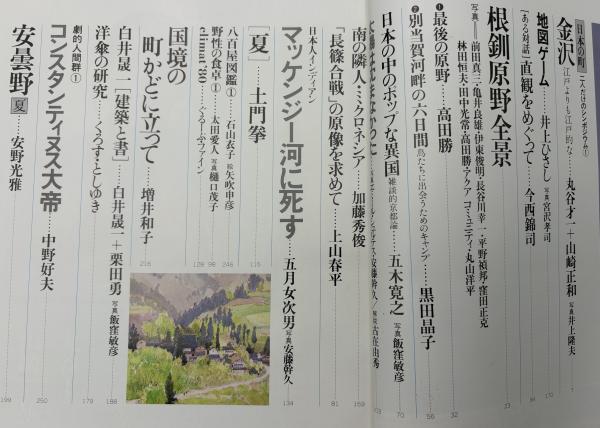 日本の町 二人だけのシンポジウム①
金沢 江戸よりも江戸的な…… 丸谷才一+山崎正和 写真 井上隆夫
地図ゲーム……井上ひさし 写真 宮沢孝司
[ある対話]直観をめぐって……今西錦司
根釧原野全景
写真――前田真三・亀井良雄・伊東俊明・長谷川幸一・平野禎邦・窪田正克
林田恒夫・田中光常・高田勝・アクア コミュニティ・丸山洋平
❶最後の原野……高田勝 32
❷別当賀河畔の六日間 鳥たちに出会うためのキャンプ……黒田晶子 56
日本の中のホップな異国 雑談的京都論……五木寛之 写真 飯窪敏彦 70
南の隣人・ミクロネシア……加藤秀俊 169
『長篠合戦』の原像を求めて……上山春平 81
日本人インディアン
マッケンジー河に死す……五月女次男 写真 安藤幹久 134
[夏]……土門拳 115
八百屋図鑑①……石山衣子 絵 矢吹申彦 246
野性の食卓①……太田愛人 写真 樋口茂子 98
climat'80……ぐるーぷ・ファイン 129
国境の
町かどに立って……増井和子 216
白井晟一[建築と書]……白井晟一+栗田勇 写真 飯窪敏彦 188
洋傘の研究……くろすとしゆき 179
劇的人間群①
コンスタンティヌス大帝……中野好夫 250
安曇野[夏]……安野光雅 199